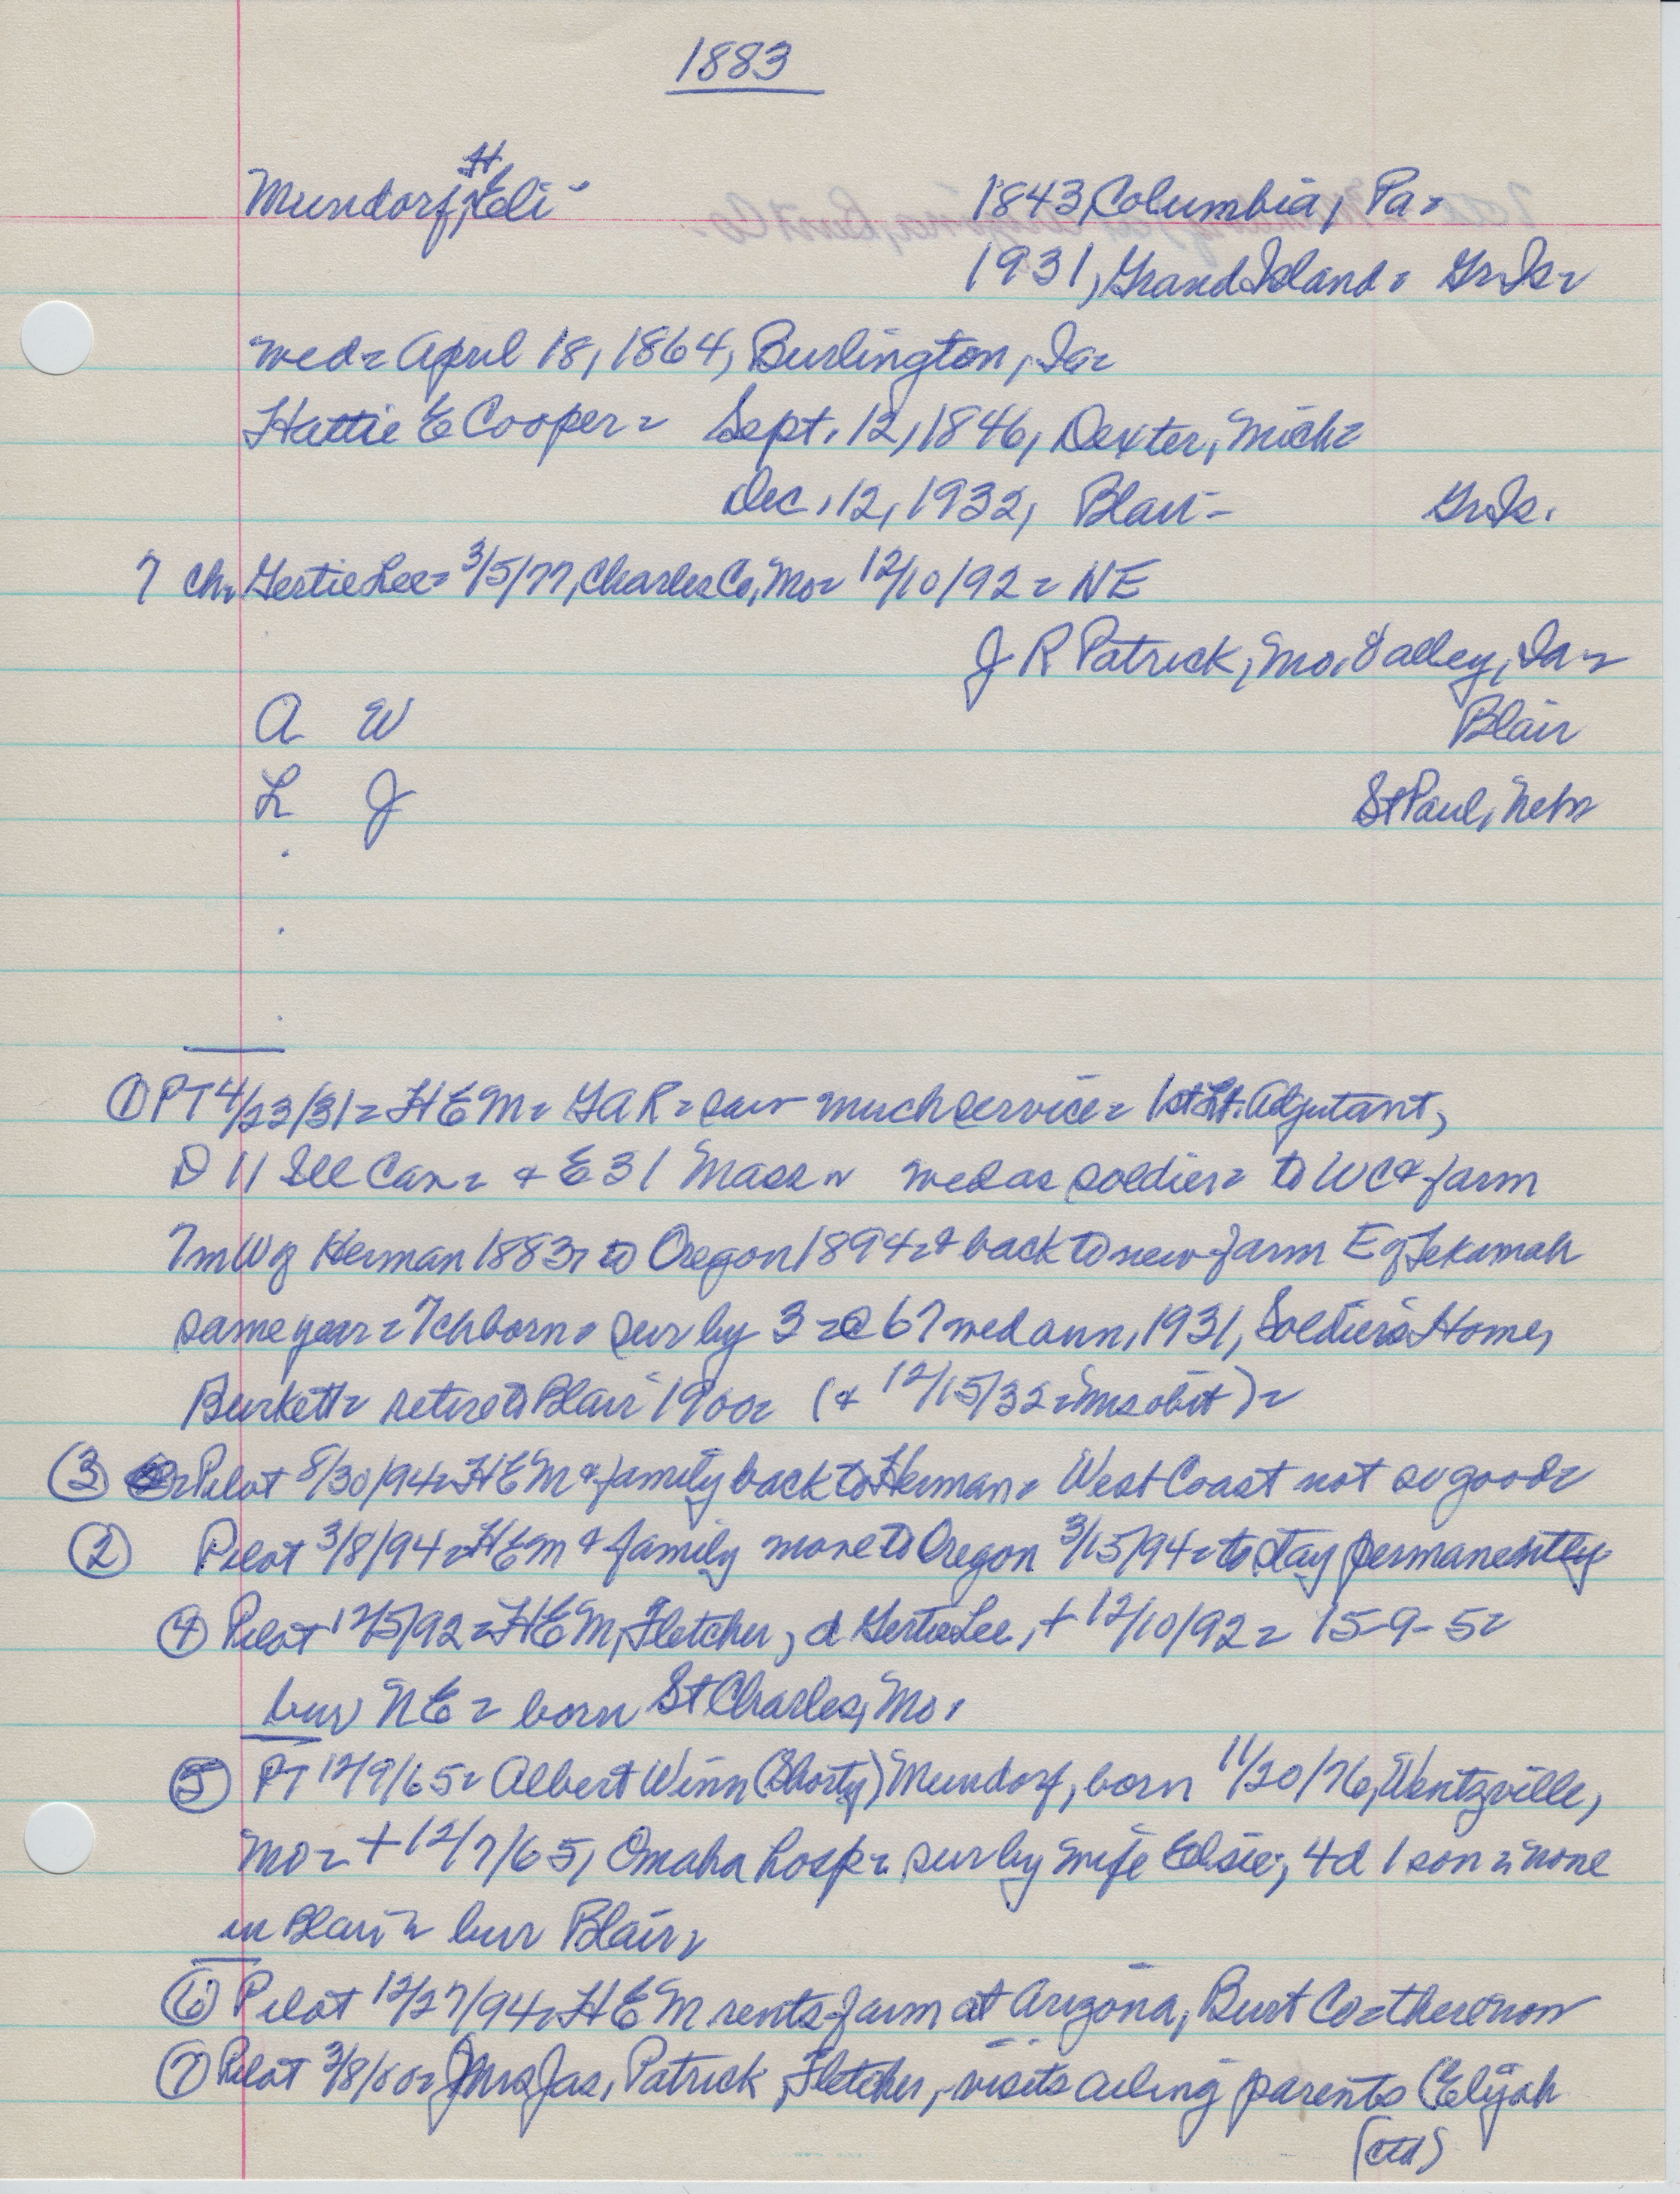 1883
H
Mundorf, Eli - 1843, Columbia, Pa -
1931, Grand Island - Grnk -
wed - April 18, 1864, Burlington, Ia -
Hattie E Cooper - Sept. 12, 1846, Dexter, Mich -
Dec. 12, 1932, Blair - Grnk.
7 ch. Gertie Lee - 3/5/77, Charles Co, Mo - 12/10/92 - NE
J R Patrick, Mo. Valley, Ia -
A W Blair
L J St Paul, Nebr
① PT 4/23/31 - H E M - GAR - saw much service - 1st Lt. Adjutant,
D 11 Ill Cav - & E 31 Mass - wed as soldier - to WC & farm
7 m W of Herman 1883 - to Oregon 1894 - & back to new farm E of Tekamah
same year - 7 ch born - sur by 3 - @ 67 wed ann, 1931, Soldiers Home,
Burkett - retire to Blair 1900 - (& 12/15/32 - Mrs obit) -
③ Pilot 8/30/94 - H E M & family back to Herman - West Coast not so good -
② Pilot 3/8/94 - H E M & family move to Oregon 3/15/94 - to stay permanently
④ Pilot 12/15/92 - H E M, Fletcher, d Gertie Lee, + 12/10/92 - 15-9-5 -
bur NE - born St Charles, Mo.
⑤ PT 12/9/65 - Albert Winn (Shorty) Mundorf, born 11/20/76, Wentzville,
Mo - + 12/7/65, Omaha hosp - sur by wife Elsie, 4 d 1 son - none
in Blair - bur Blair -
⑥ Pilot 12/27/94 - H E M rents farm at Arizona, Burt Co - there now
⑦ Pilot 3/8/00 - Mrs Jas. Patrick, Fletcher, visits ailing parents (Elijah
(ctd)